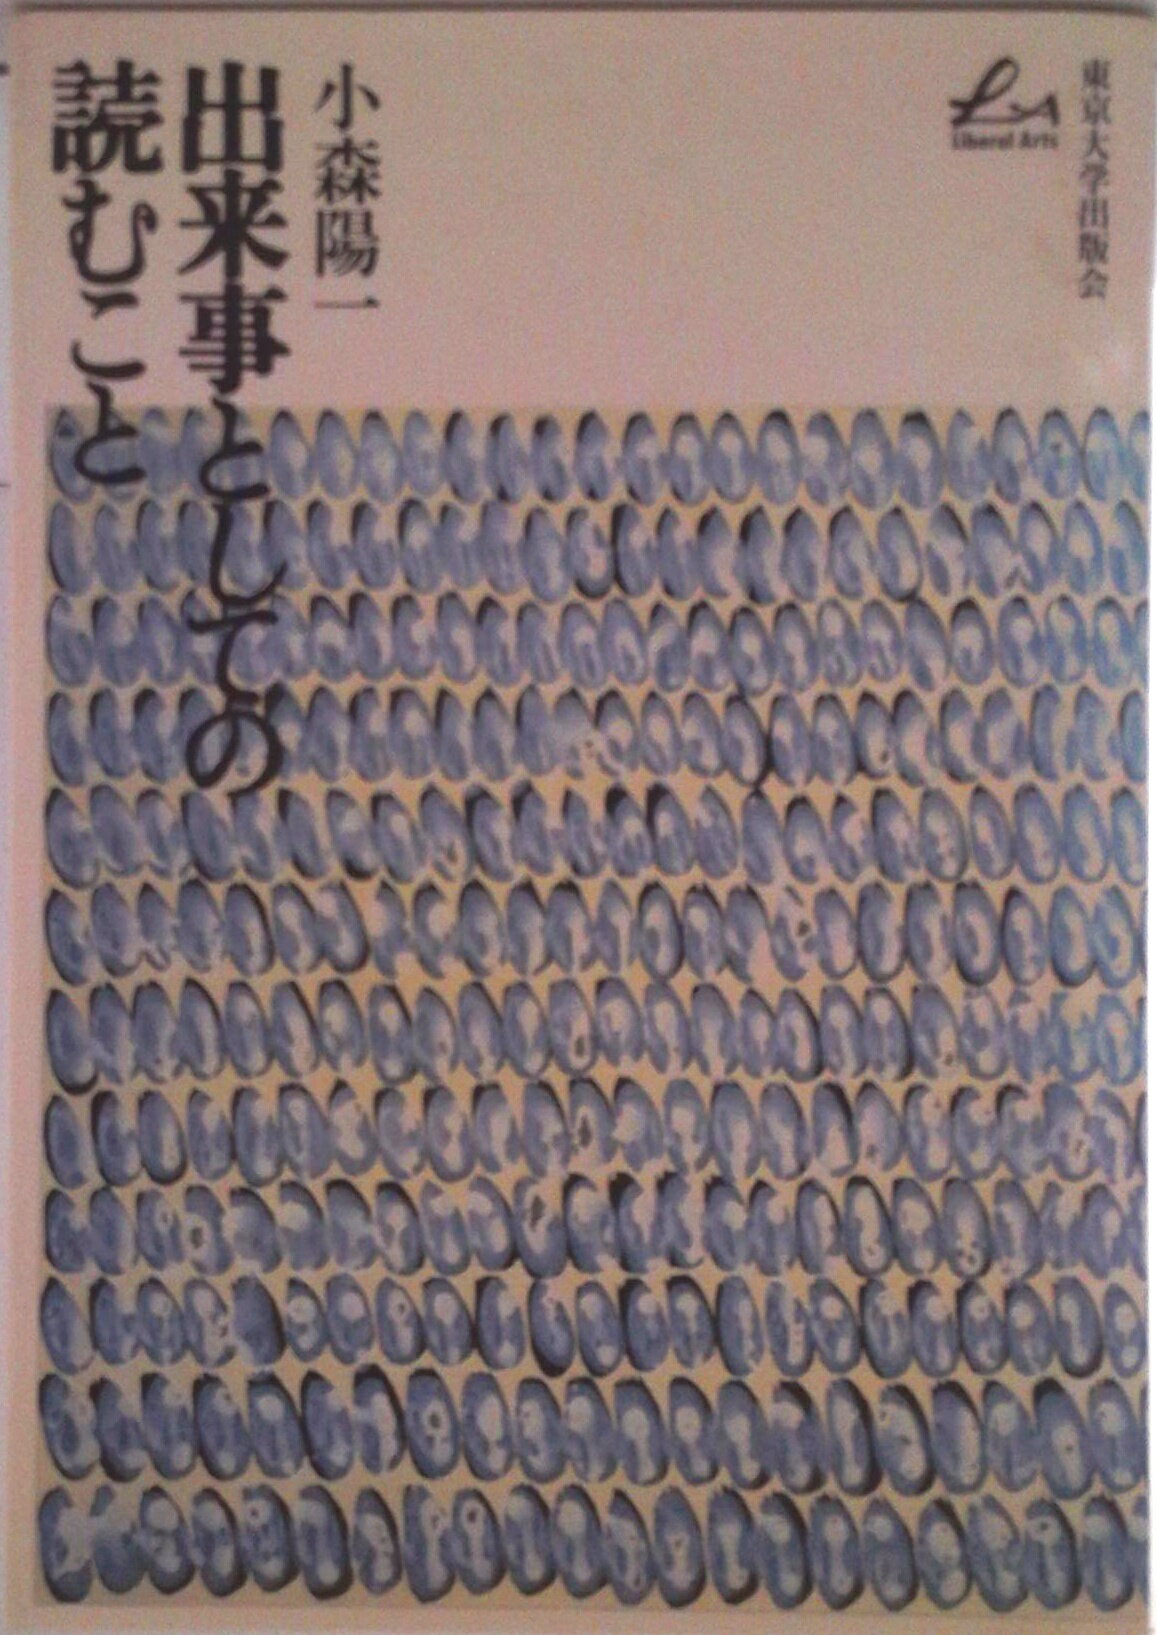 東京大学出版会
LA
Liberal Arts
小森陽一
出来事としての
読むこと